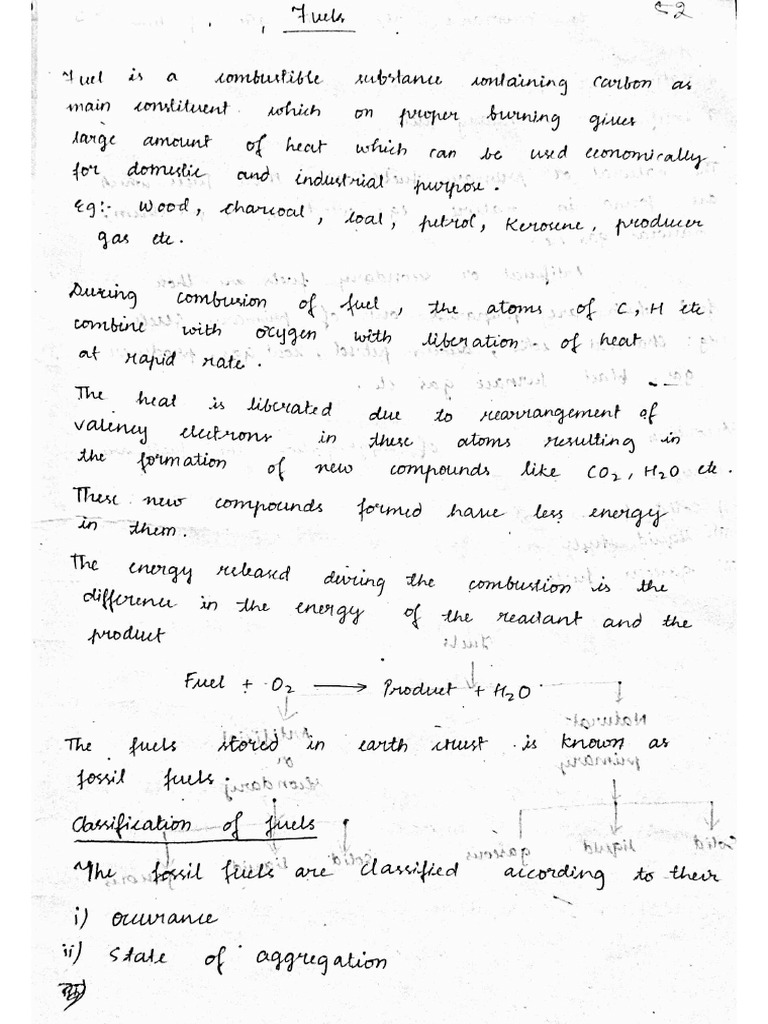 Fuels
Fuel is a combustible substance containing carbon as
main constituent which on proper burning gives
large amount of heat which can be used economically
for domestic and industrial purpose.
Eg:- Wood, charcoal, coal, petrol, Kerosene, producer
gas etc.
During combusion of fuel, the atoms of C, H etc
combine with oxygen with liberation of heat
at rapid rate.
The heat is liberated due to rearrangement of
valency electrons in these atoms resulting in
the formation of new compounds like CO2, H2O etc.
These new compounds formed have less energy
in them.
The energy released during the combustion is the
difference in the energy of the reactant and the
product
Fuel + O2 ⟶ Product + H2O
The fuels stored in earth crust is known as
fossil fuels.
Classification of fuels
The fossil fuels are classified according to their
i) Occurance
ii) State of aggregation